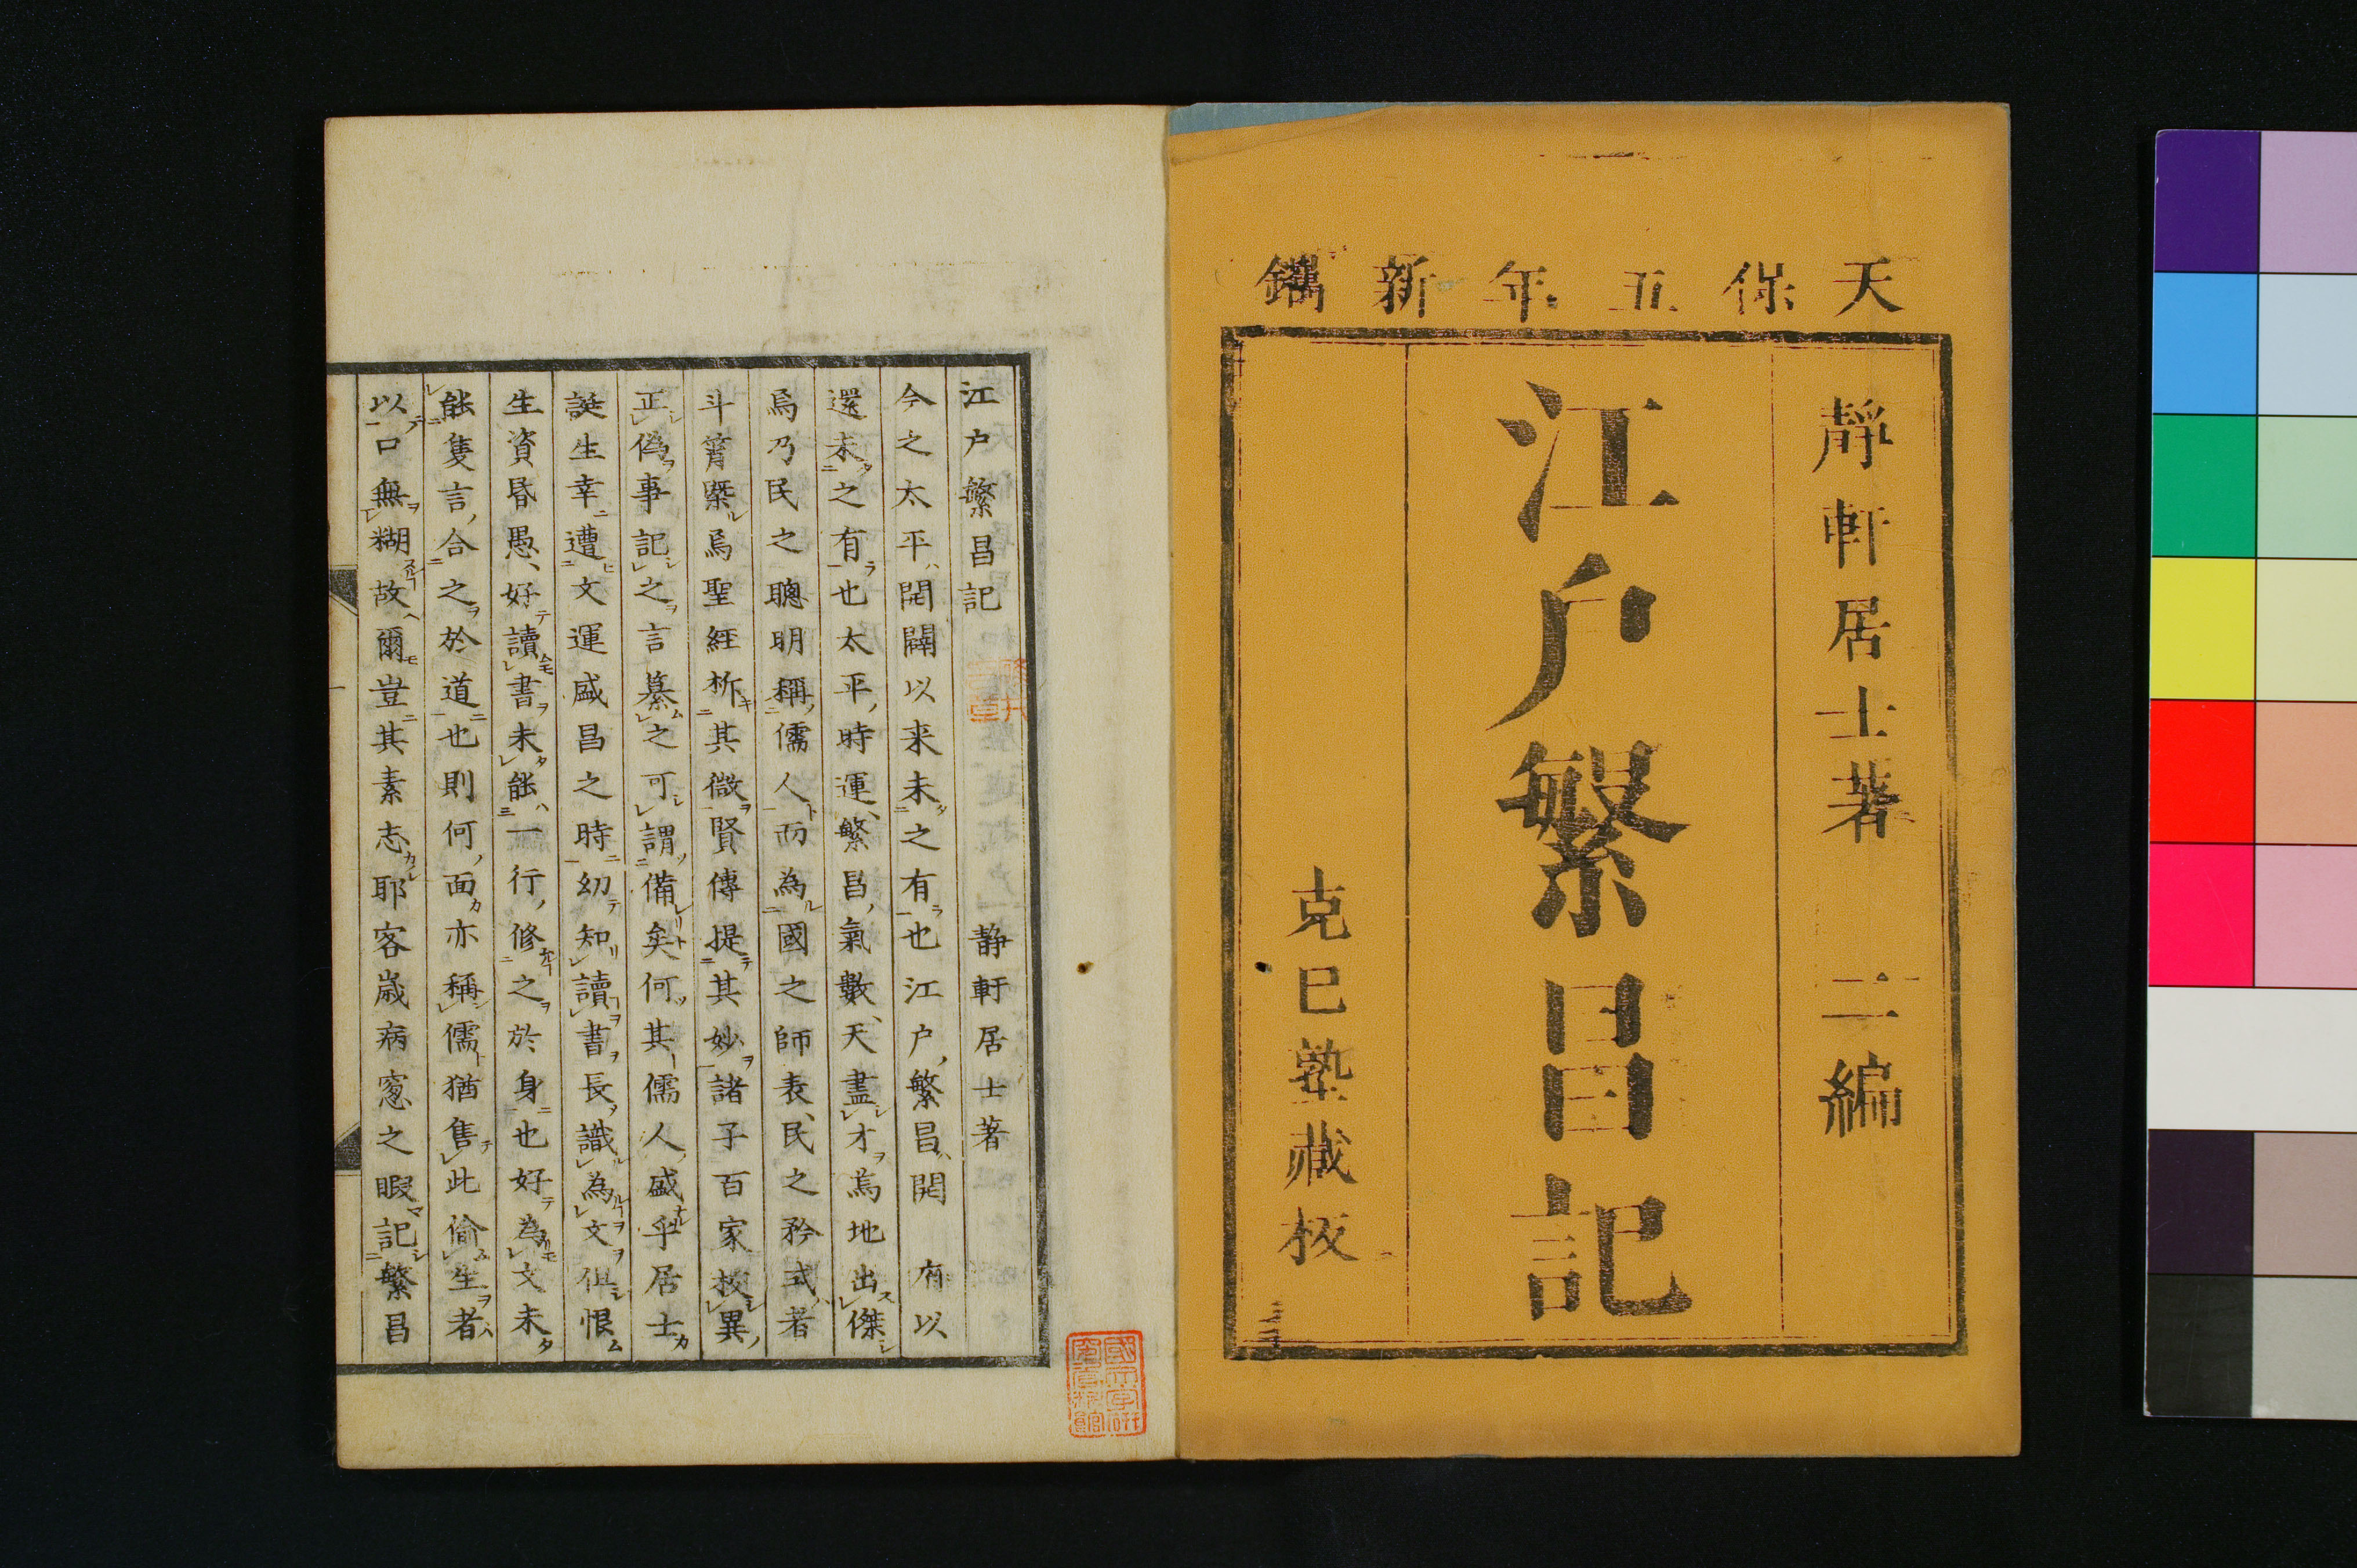 天保五年新鐫
靜軒居士著 二編
江戶繁昌記
克己塾藏板
江戶繁昌記 靜軒居士著
今之太平開闢以來未之有也江戶繁昌開 府以
還未之有也太平時運繁昌氣數天盡才焉地出傑
焉乃民之聰明稱儒人而為國之師表民之矜式者
斗筲槩焉聖經析其微賢傳提其妙諸子百家挍異
正偽事記之言纂之可謂備矣何其儒人盛乎居士
誕生幸遭文運盛昌之時幼知讀書長識為文但恨
生資昏愚好讀書未能一行修之於身也好為文未
能隻言合之於道也則何面亦稱儒猶售此偷生者
以口無糊故爾豈其素志耶客歲病窓之暇記繁昌